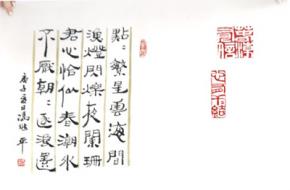 點〻繁星雲海間
漁燈閃爍夜闌珊
君心恰似春潮水
不厭朝〻逐浪還
庚子夏日馮
平